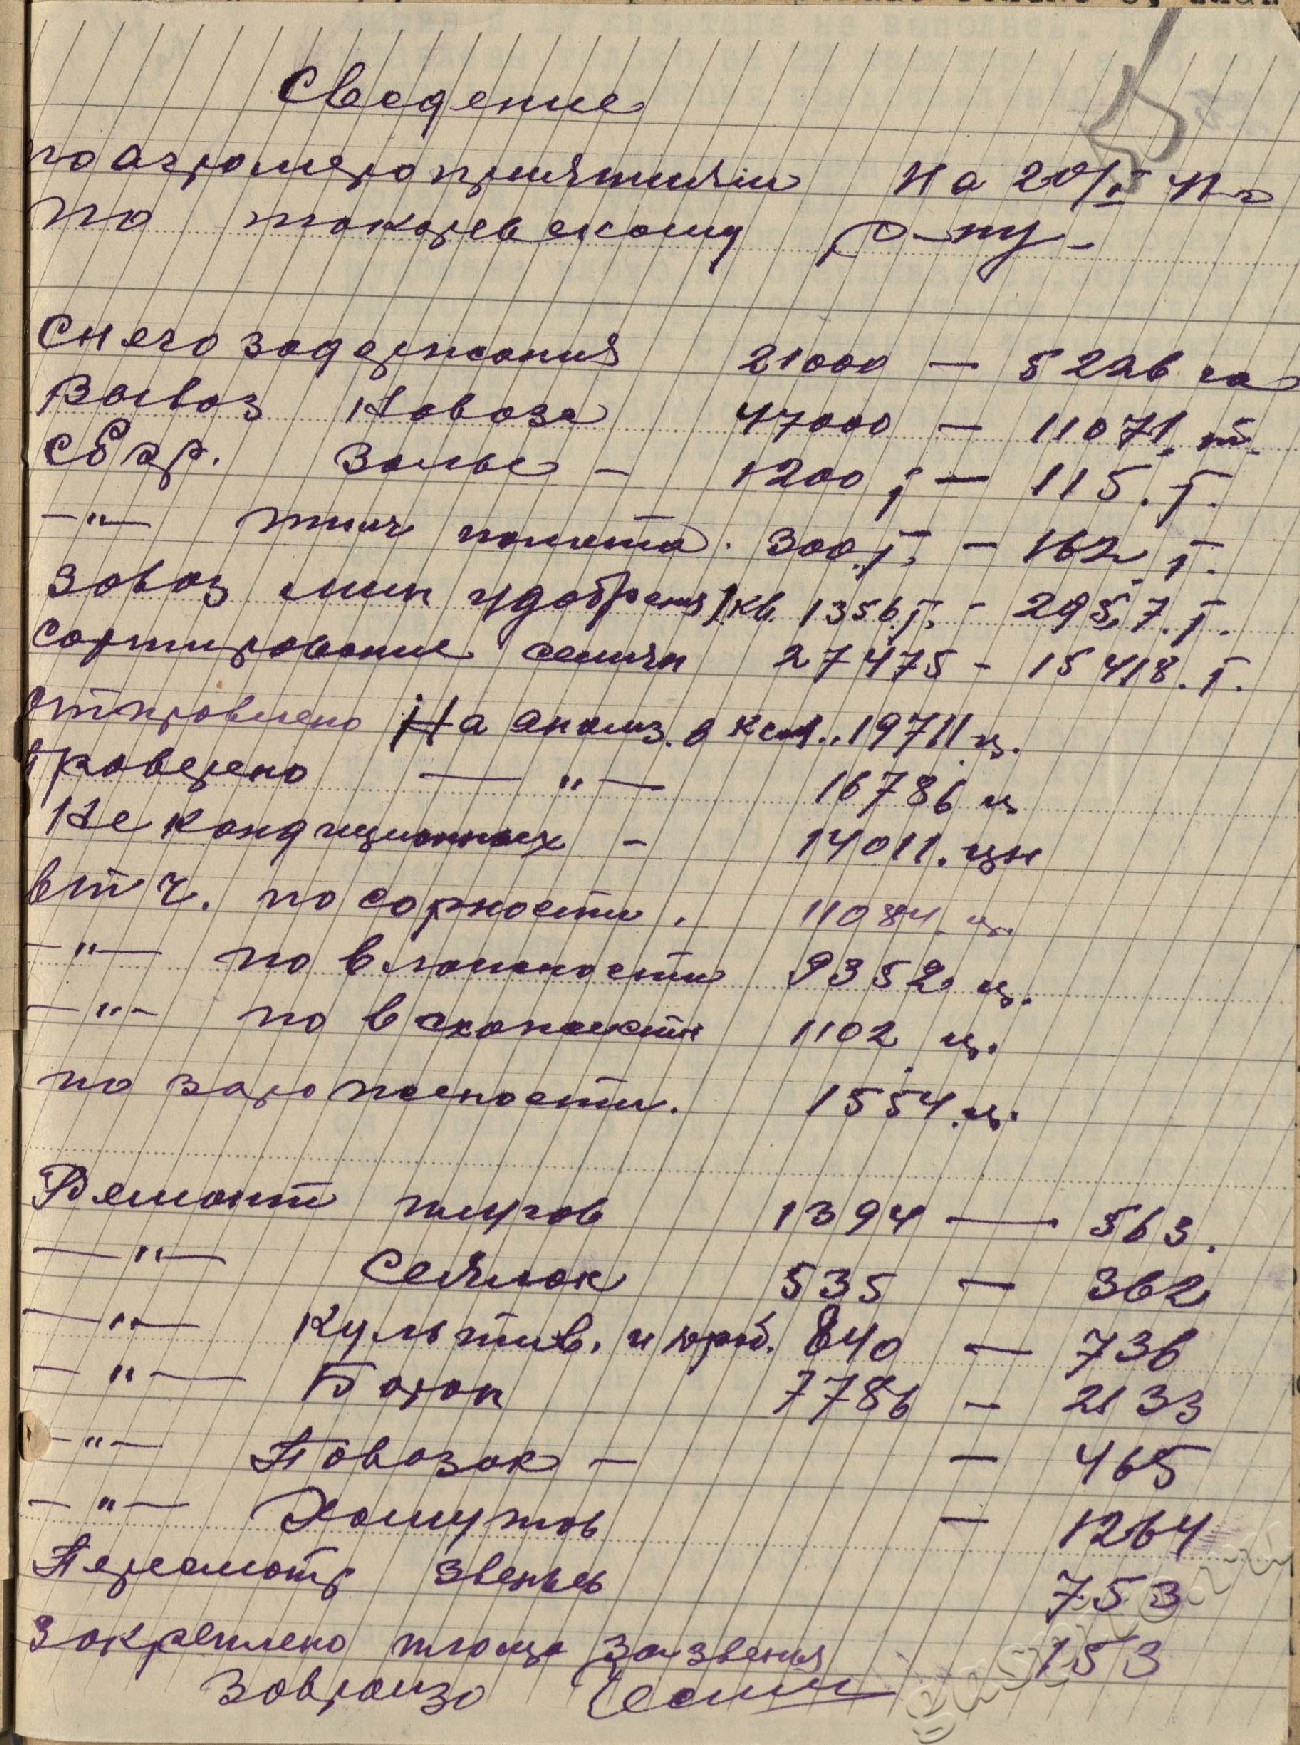 Сведение
по агромероприятиям на 20/I 41 г
по токаревскому р-ну-
Снегозадержания 21000 — 5226 га
Вывоз Навоза 47000 — 11071. т.
Сбор. Золы — 1200 т — 115. т.
—"— птич помета. 300 т. — 162 т.
Завоз мин удобрения 1 кв. 1356 т. - 295,7. т.
Сортирование семян 27475 - 15418. т.
Отправлено На анализ. в ксл.. 19711 ц.
Проверено — " — 16786 ц
Не кондиционных - 14011. цн
в т ч. по сорности. 11084 ц.
—"— по влажности 9352 ц.
—"— по всхожести 1102 ц.
по зараженности. 1554. ц.
Ремонт плугов 1394 — 563.
—"— Сеялок 535 — 362
—"— Культив. и проб. 840 — 736
—"— Борон 7786 - 2133
—"— Повозок — — 465
—"— Хомутов — 1264
Пересмотр звеньев 753
Закреплено площ за звеня 153
Заврайзо
gaspito.ru